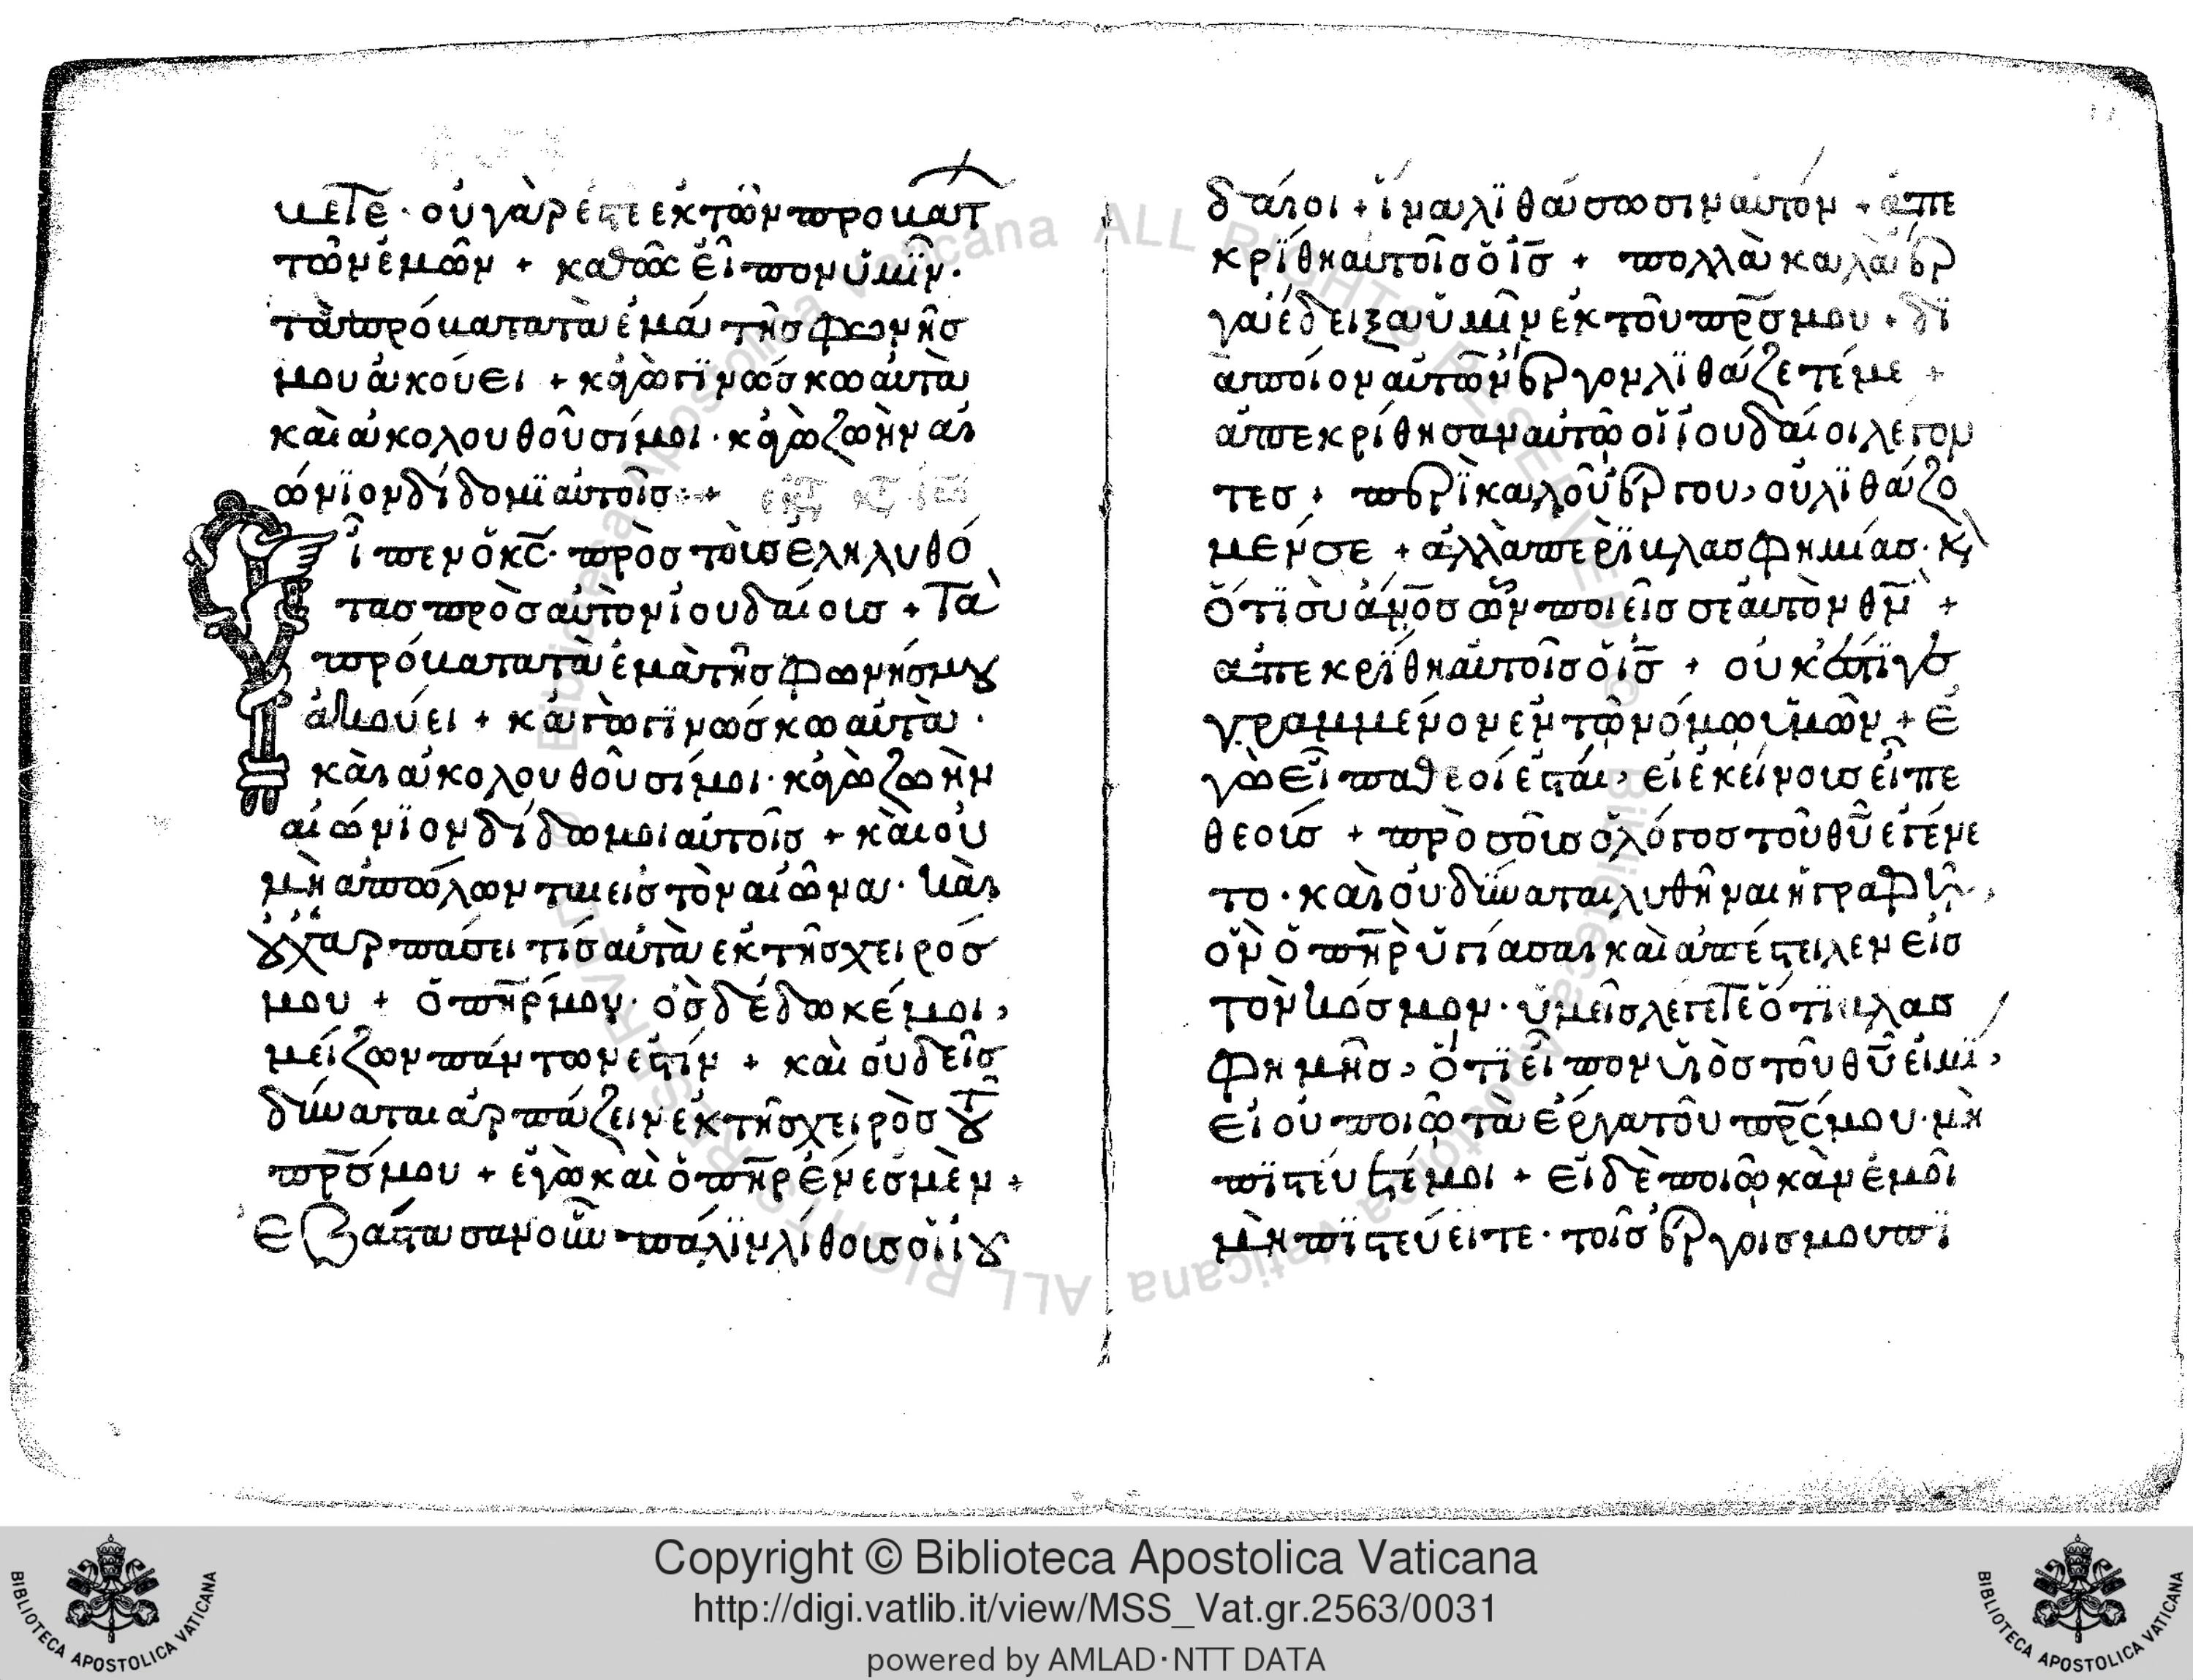 ύετε · οὐ γὰρ ἐστὲ ἐκ τῶν προβάτ
τῶν ἐμῶν + καθὼς εἶπον ὑμῖν ·
τὰ πρόβατα τὰ ἐμὰ τῆσ φωνῆσ
μου ἀκούει + κἀγὼ γϊνώσκω αὐτὰ
καὶ ἀκολουθοῦσί μοι · κἀγὼ ζωὴν αἰ
ώνϊον δίδομϊ αὐτοῖσ +
Εἶπεν ὁ κς̄ · πρὸσ τοὺσ ἐληλυθό
τασ πρὸσ αὐτὸν ἰουδαίουσ + Τὰ
πρόβατα τὰ ἐμὰ τῆσ φωνήσ μȣ
ἀκούει + κἀγὼ γϊνώσκω αὐτὰ ·
καὶ ἀκολουθοῦσί μοι · κἀγὼ ζωὴν
αἰώνϊον δίδωμοι αὐτοῖσ + καὶ οὐ
μὴ ἀπώλωνται εἰσ τὸν αἰῶνα · καὶ
ȣ̓χ ἁρπάσει τίσ αὐτὰ ἐκ τῆσ χειρόσ
μου + ὁ πη̄ρ μου · ὃσ δέδωκέ μοι,
μείζων πάντων ἐστίν + καὶ οὐδεῖσ
δύναται ἁρπάζειν ἐκ τῆσ χειρὸσ τȣ̃
πρ̄σ μου + ἐγὼ καὶ ὁ πη̄ρ ἕν ἐσμὲν +
ἐβάστασαν οὖν πάλϊν λίθουσ οἱ ἰȣ
δαῖοι + ἵνα λϊθάσωσιν αὐτόν + ἀπε
κρϊθη αὐτοῖσ ὁ ἰσ̄ + πολλὰ καλὰ ἔρ
γα ἔδειξα ὑμῖν ἐκ τοῦ πρ̄σ μου + δϊ
ἀποίον αὐτῶν ἔργον λϊθάζετέ με +
ἀπεκρίθησαν αὐτῷ οἱ ἰουδαίοι λέγον
τεσ + περὶ καλοῦ ἔργου, οὐ λϊθάζο
μέν σε + ἀλλὰ περὶ βλασφημίασ · κ̣
ὅτϊ σὺ ἀν̄οσ ὢν ποιεῖσ σεαυτὸν θν̄ +
ἀπεκρϊθη αὐτοῖσ ὁ ἰσ̄ + οὐκ ἔστϊ γε
γραμμένον ἐν τῷ νόμῳ ὑμῶν + ἐ
γὼ εἶπα θεοί ἐσται, εἰ ἐκείνουσ εἶπε
θεοὺσ + πρὸσ οὓσ ὁ λόγοσ τοῦ θῡ ἐγένε
το · καὶ οὐ δύναται λυθῆναι ἡ γραφὴ,
ὃν ὁ πη̄ρ ὑγίασαι καὶ ἀπέστειλεν εἰσ
τὸν κόσμον · ὑμεῖσ λέγετε ὅτϊ βλασ
φημῆσ, ὅτϊ εἶπον υἱὸσ τοῦ θῡ εἰμϊ,
εἰ οὐ ποιῶ τὰ ἔργα τοῦ πρ̄ς μου · μὴ
πϊστεύετέ μοι + εἰ δὲ ποιῶ κἂν ἐμοὶ
μὴ πϊστεύειτε · τοῖσ ἔργοισ μου πϊ
Copyright © Biblioteca Apostolica Vaticana
http://digi.vatlib.it/view/MSS_Vat.gr.2563/0031
powered by AMLAD·NTT DATA
BIBLIOTECA APOSTOLICA VATICANA
BIBLIOTECA APOSTOLICA VATICANA